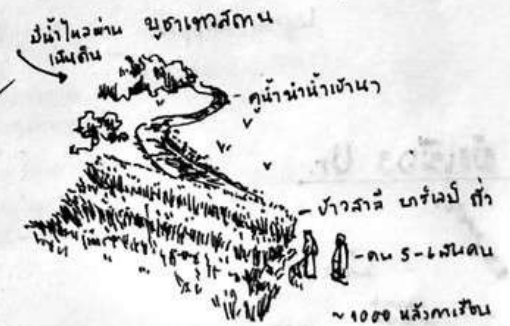 มีน้ำไหลผ่าน
เนินดิน
บูชาเทวสถาน
คูน้ำนำน้ำเข้านา
ข้าวสาลี บาร์เลย์ ถั่ว
คน 5-6 พันคน
~1000 หลังคาเรือน